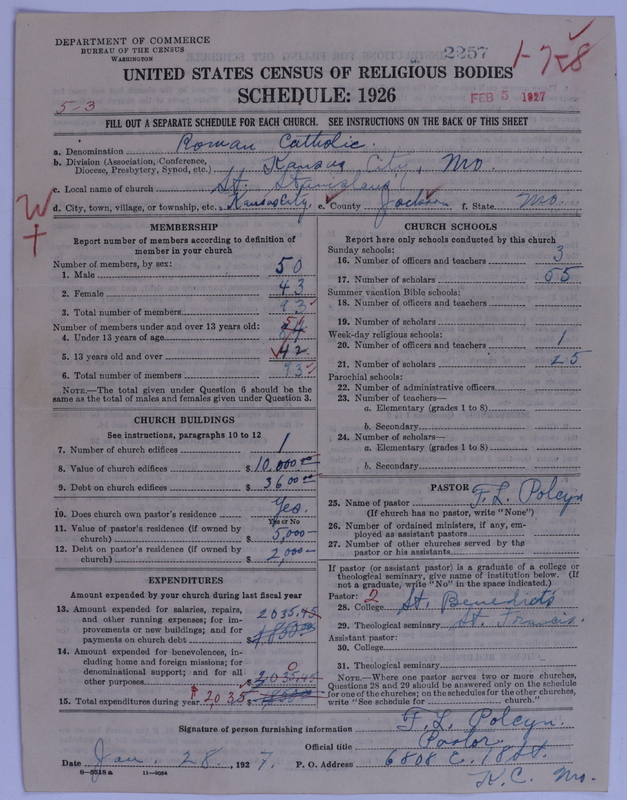 DEPARTMENT OF COMMERCE
BUREAU OF THE CENSUS
WASHINGTON
2257
1-7-8
UNITED STATES CENSUS OF RELIGIOUS BODIES
SCHEDULE: 1926
FEB 5 1927
5-3
FILL OUT A SEPARATE SCHEDULE FOR EACH CHURCH. SEE INSTRUCTIONS ON THE BACK OF THIS SHEET
a. Denomination Roman Catholic.
b. Division (Association, Conference, Diocese, Presbytery, Synod, etc.) Kansas City, Mo.
c. Local name of church St. Stanislaus
d. City, town, village, or township, etc. Kansas City. e. County Jackson f. State Mo.
W
MEMBERSHIP
Report number of members according to definition of member in your church
Number of members, by sex:
1. Male 50
2. Female 43
3. Total number of members 93
Number of members under and over 13 years old:
4. Under 13 years of age 51
5. 13 years old and over 42
6. Total number of members 93
NOTE.—The total given under Question 6 should be the same as the total of males and females given under Question 3.
CHURCH BUILDINGS
See instructions, paragraphs 10 to 12
7. Number of church edifices 1
8. Value of church edifices $ 10,000.00
9. Debt on church edifices $ 3600.00
10. Does church own pastor's residence Yes.
Yes or No
11. Value of pastor's residence (if owned by church) $ 5,000
12. Debt on pastor's residence (if owned by church) $ 2,000
EXPENDITURES
Amount expended by your church during last fiscal year
13. Amount expended for salaries, repairs, and other running expenses; for improvements or new buildings; and for payments on church debt $ 2035.45
14. Amount expended for benevolences, including home and foreign missions; for denominational support; and for all other purposes $ 0 2035.45
15. Total expenditures during year $2035
CHURCH SCHOOLS
Report here only schools conducted by this church
Sunday schools:
16. Number of officers and teachers 3
17. Number of scholars 65
Summer vacation Bible schools:
18. Number of officers and teachers
19. Number of scholars
Week-day religious schools:
20. Number of officers and teachers 1
21. Number of scholars 25
Parochial schools:
22. Number of administrative officers
23. Number of teachers—
a. Elementary (grades 1 to 8)
b. Secondary
24. Number of scholars—
a. Elementary (grades 1 to 8)
b. Secondary
PASTOR
25. Name of pastor F.L. Polcyn
(If church has no pastor, write "None")
26. Number of ordained ministers, if any, employed as assistant pastors
27. Number of other churches served by the pastor or his assistants
If pastor (or assistant pastor) is a graduate of a college or theological seminary, give name of institution below. (If not a graduate, write "No" in the space indicated.)
Pastor: 2
28. College St. Benedicts
29. Theological seminary St. Francis.
Assistant pastor:
30. College
31. Theological seminary
NOTE.—Where one pastor serves two or more churches, Questions 28 and 29 should be answered only on the schedule for one of the churches; on the schedules for the other churches, write "See schedule for church."
Signature of person furnishing information F.L. Polcyn.
Official title Pastor.
Date Jan. 28, 1927. P. O. Address 6808 E. 18 St.
K.C. Mo.
8-5218a 11-9054